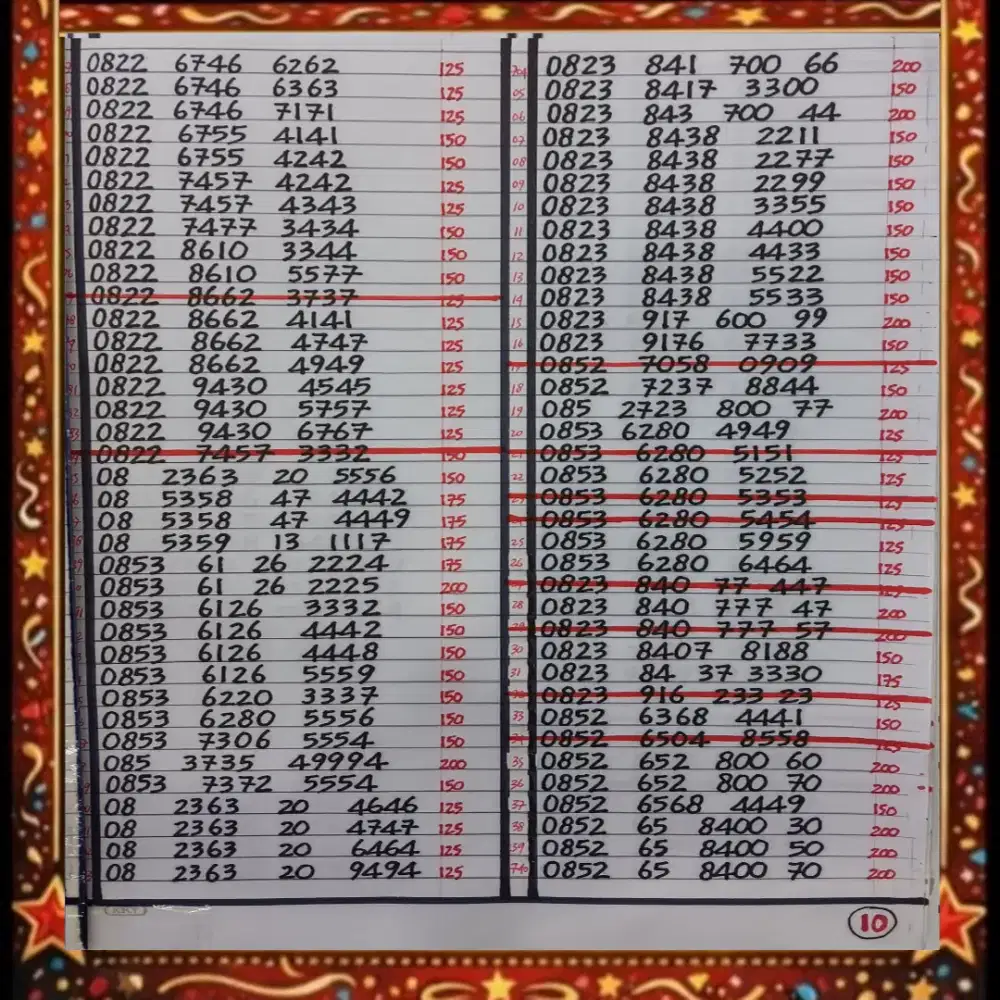 0822 6746 6262 125
0822 6746 6363 125
0822 6746 7171 125
0822 6755 4141 150
0822 6755 4242 150
0822 7457 4242 125
0822 7457 4343 125
0822 7477 3434 150
0822 8610 3344 150
0822 8610 5577 150
0822 8662 3737 125
0822 8662 4141 125
0822 8662 4747 125
0822 8662 4949 125
0822 9430 4545 125
0822 9430 5757 125
0822 9430 6767 125
0822 7457 3332 150
08 2363 20 5556 150
08 5358 47 4442 175
08 5358 47 4449 175
08 5359 13 1117 175
0853 61 26 2224 175
0853 61 26 2225 200
0853 6126 3332 150
0853 6126 4442 150
0853 6126 4448 150
0853 6126 5559 150
0853 6220 3337 150
0853 6280 5556 150
0853 7306 5554 150
085 3735 49994 200
0853 7372 5554 150
08 2363 20 4646 125
08 2363 20 4747 125
08 2363 20 6464 125
08 2363 20 9494 125
704 0823 841 700 66 200
05 0823 8417 3300 150
06 0823 843 700 44 200
07 0823 8438 2211 150
08 0823 8438 2277 150
09 0823 8438 2299 150
10 0823 8438 3355 150
11 0823 8438 4400 150
12 0823 8438 4433 150
13 0823 8438 5522 150
14 0823 8438 5533 150
15 0823 917 600 99 200
16 0823 9176 7733 150
0852 7058 0909 125
18 0852 7237 8844 150
19 085 2723 800 77 200
20 0853 6280 4949 125
0853 6280 5151 125
22 0853 6280 5252 125
0853 6280 5353 125
0853 6280 5454 125
25 0853 6280 5959 125
26 0853 6280 6464 125
0823 840 77 447
28 0823 840 777 47 200
0823 840 777 57 200
30 0823 8407 8188 150
31 0823 84 37 3330 175
0823 916 233 23 125
33 0852 6368 4441 150
0852 6504 8558 125
35 0852 652 800 60 200
36 0852 652 800 70 200
37 0852 6568 4449 150
38 0852 65 8400 30 200
39 0852 65 8400 50 200
740 0852 65 8400 70 200
10